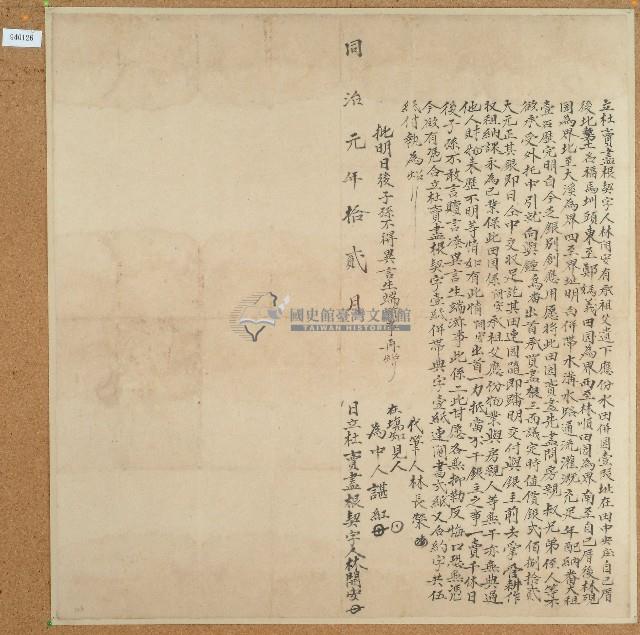 立杜賣盡根契字人林開安有承祖父遺下應份水田併園壹段址在田中央庄自己厝
後北勢土名稱馬圳頭東至鄭媽義田園為界西至林順田園為界南至自己厝後林現
園為界北至大溪為界四至界址明白併帶水溝水路通流灌溉充足年配納番大租
壹石歷完明白今乏銀別創應用愿將此田園賣盡先盡問房親叔兄弟侄人等不
欲承受外托中引就向與鍾
大元正其銀即日仝中交收足訖其田連園隨即踏明交付與銀主前去掌管耕作
收租納課永為己業保此田園係開安承祖父應份物業與房親人等無干亦無與過
他人財物來歷不明等情如有此情開安出首一力抵當不干銀主之事一賣千休日
後子孫不敢言贖言添異言生端滋事此係二比甘愿各無抑勒反悔口恐無憑
今欲有憑合立杜賣盡根契字壹紙併帶典字壹紙連
紙付執為炤
批明日後子孫不得異言生端
代筆人林長榮
在場知見人
為中人諶紅
同治元年拾貳月 日立杜賣盡根契字人林開安
國史館臺灣文獻館
TAIWAN HISTORICA
940126